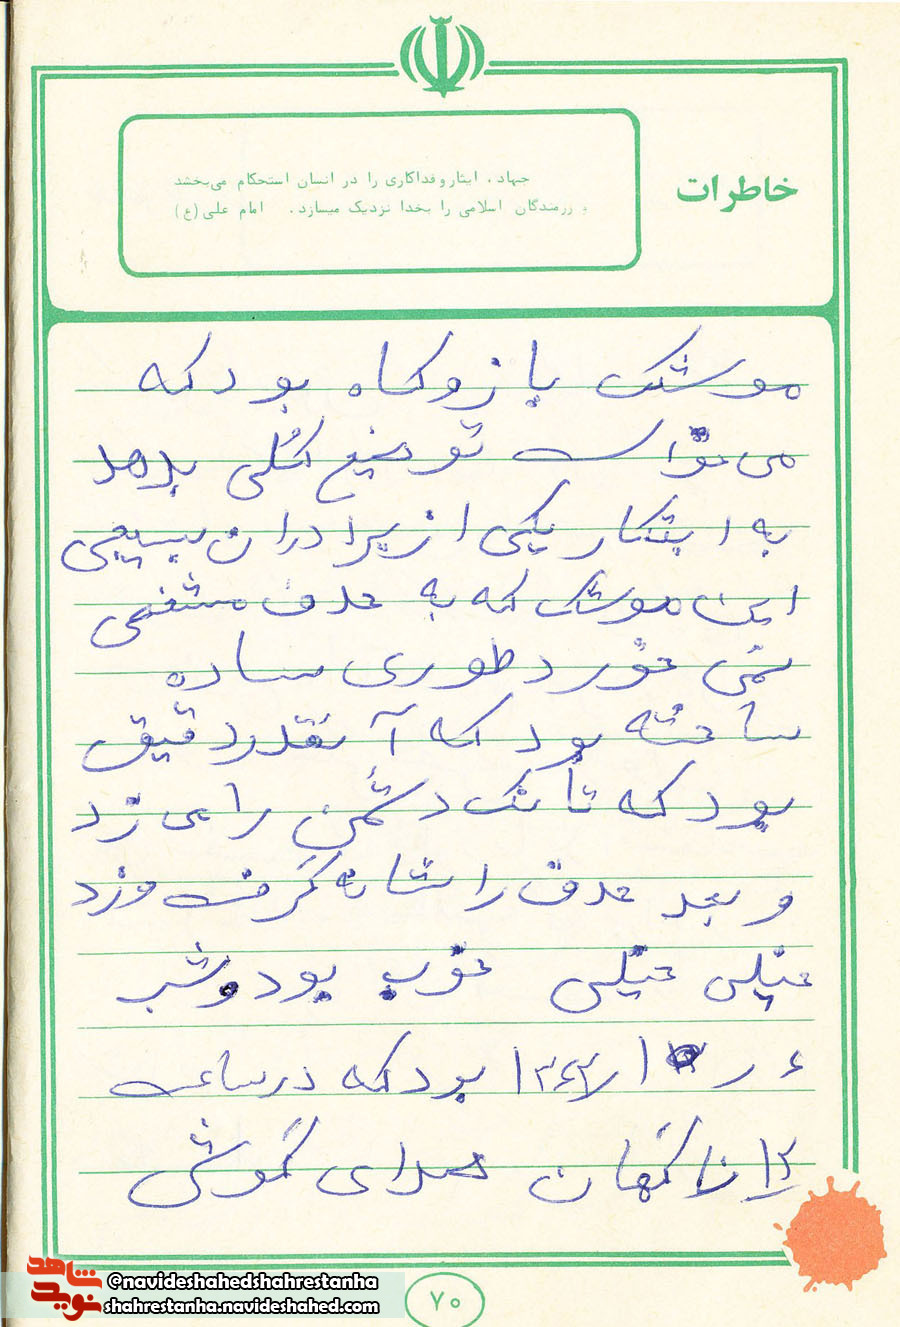 خاطرات
جهاد، ایثار و فداکاری را در انسان استحکام می‌بخشد
رزمندگان اسلامی را بخدا نزدیک میسازد. امام علی (ع)
موشک بازوکاه بود که
می تواست توضیع کلی بدهد
به ابتکار یکی از برادران بسیجی
این موشک که به هدف مشخصی
نمی خورد طوری ساده
ساخته بود که آنقدر دقیق
بود که تانک دشمن را می زد
و بعد هدف را نشانه گرفت و زد
خیلی خیلی خوب بود و شب
بود که در ساعت
۱۲ ناگهان صدای گوش
۷۰
شاهد
نوید
@navideshahedshahrestanha
shahrestanha.navideshahed.com